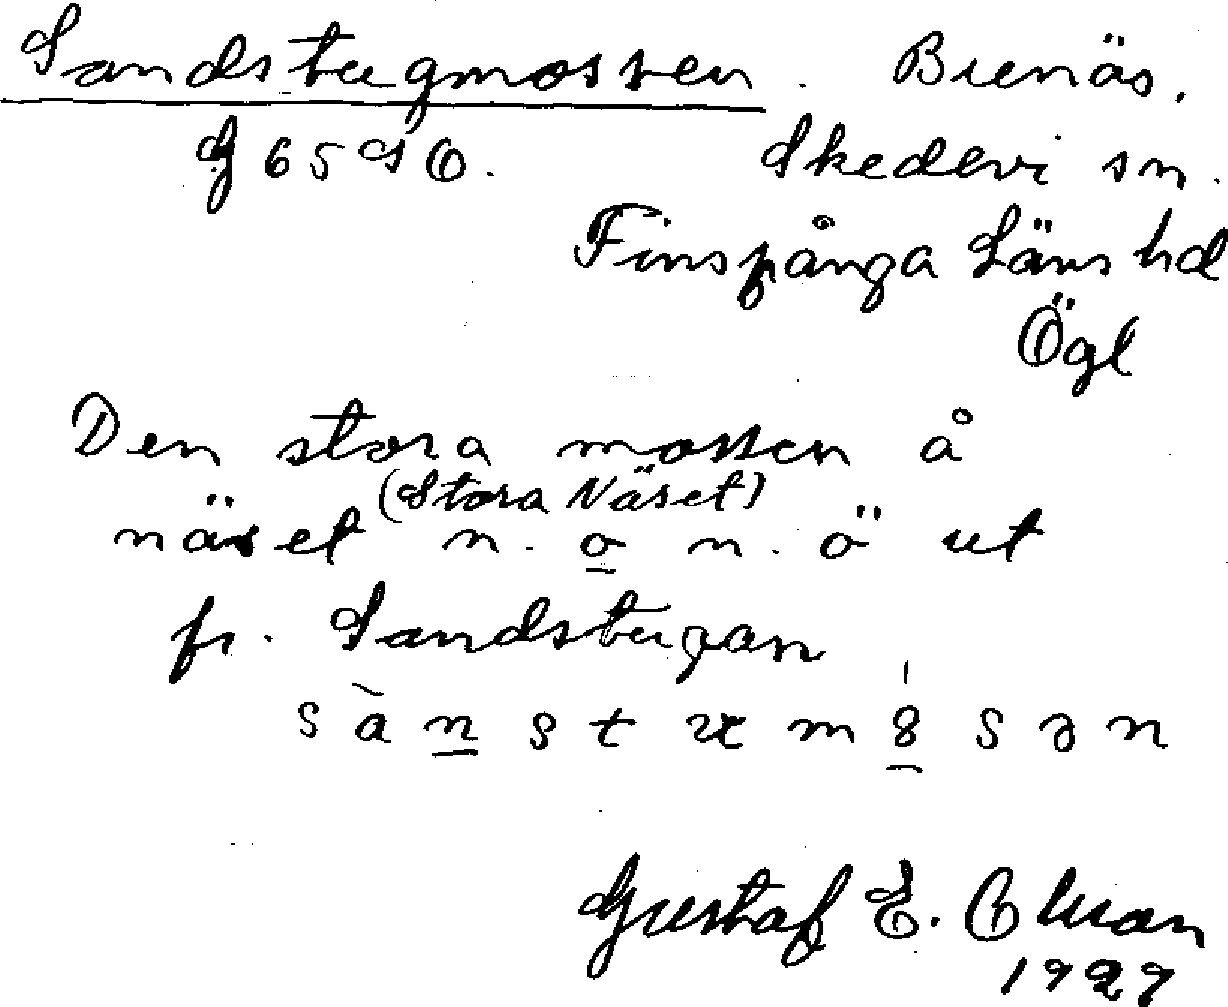 Sandstugmossen. Brenäs.
G 65 SO. Skedevi sn.
Finspånga Läns hd
Ögl
Den stora mossen å
(Stora Näset)
näset n. o n. ö ut
fr. Sandstugan
Gustaf E. Olsson
1929